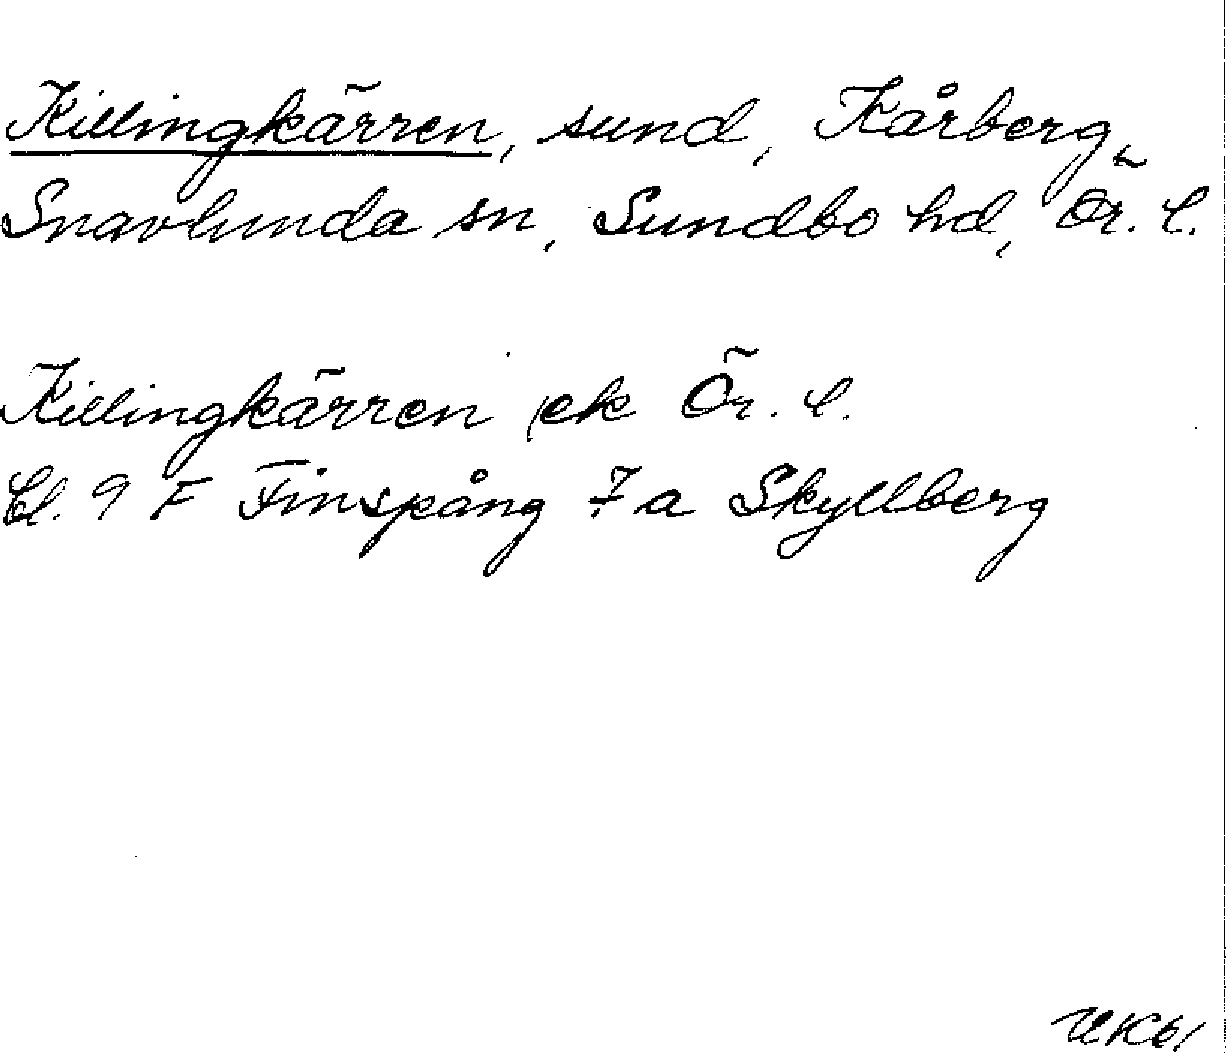 Killingkärren, sund, Kårberg,
Snavlunda sn, Sundbo hd, Ör. l.
Killingkärren ek Ör. l.
Bl. 9 F Finspång 7 a Skyllberg